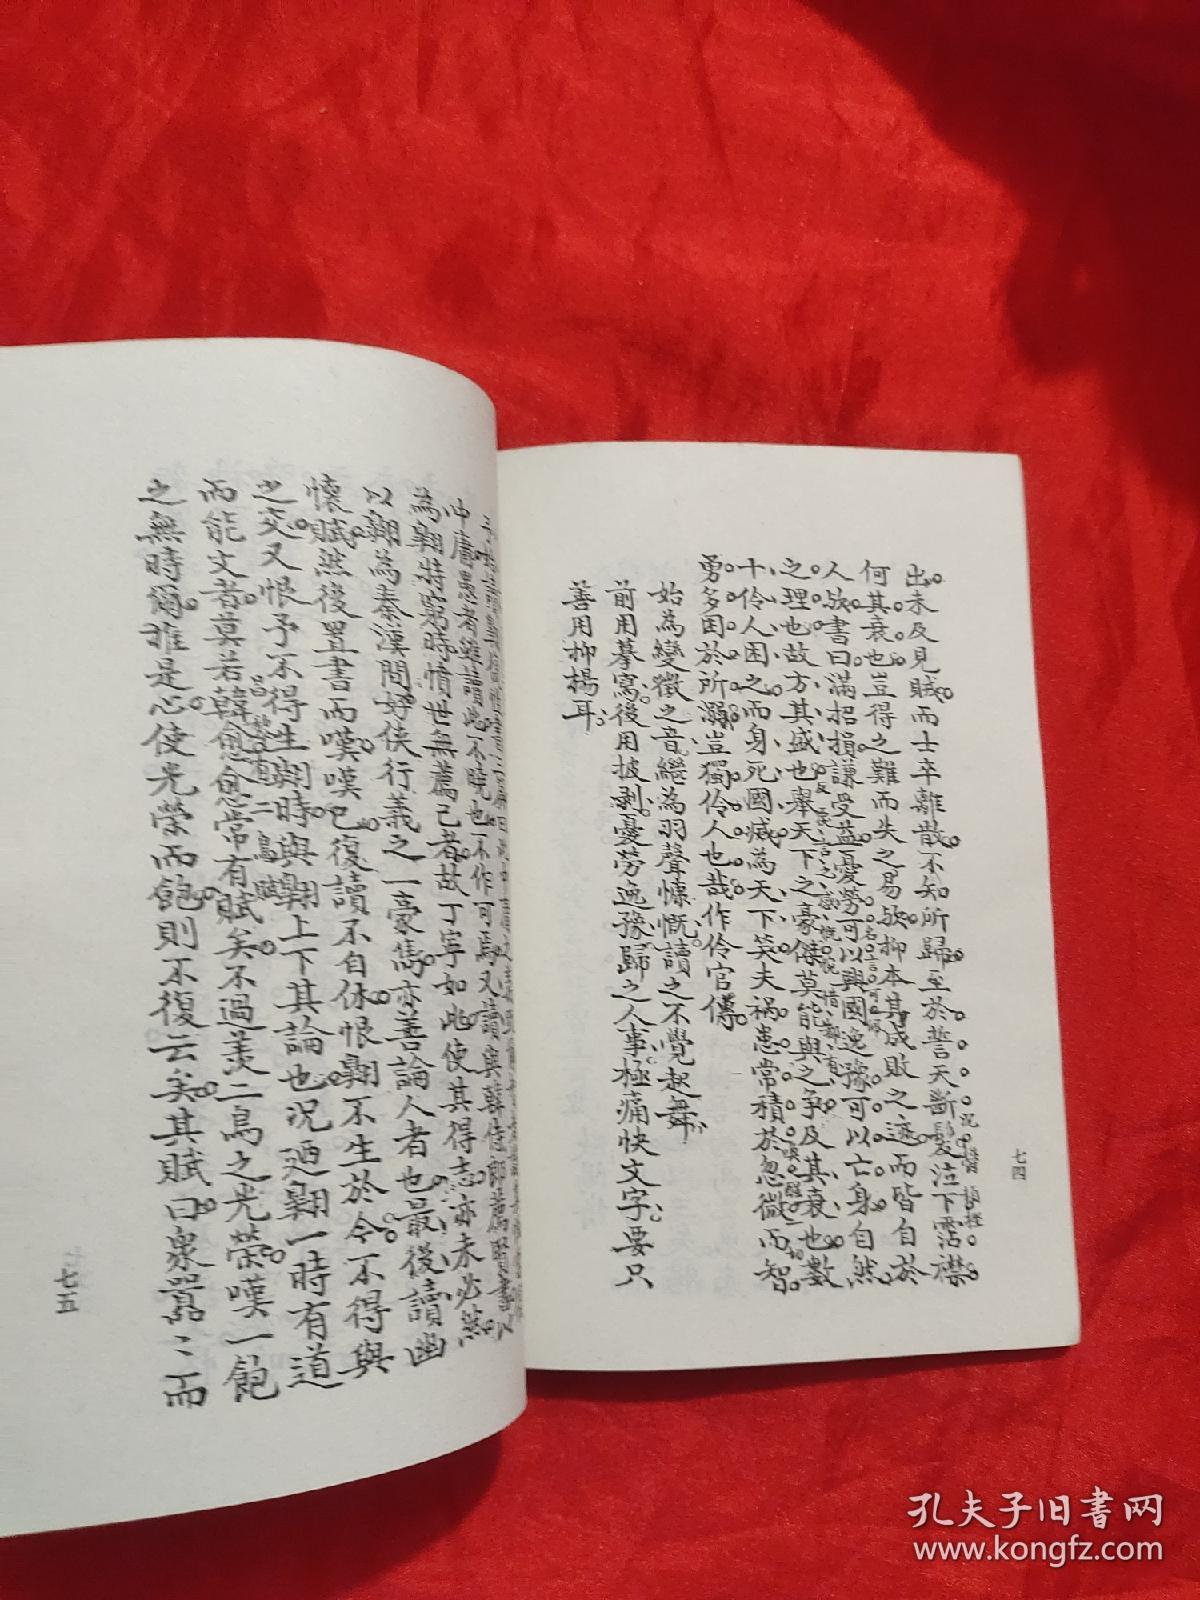 出未及見賊而士卒離散不知所歸至於誓天斷髮泣下霑襟
何其衰也豈得之難而失之易歟抑本其成敗之迹而皆自於
人歟書曰滿招損謙受益憂勞可以興國逸豫可以亡身自然
之理也故方其盛也舉天下之豪傑莫能與之爭及其衰也數
十伶人困之而身死國滅為天下笑夫禍患常積於忽微而智
勇多困於所溺豈獨伶人也哉作伶官傳
始為變徵之音繼為羽聲慷慨讀之不覺起舞
前用摹寫後用披剥憂勞逸豫歸之人事極痛快文字要只
善用抑揚耳
七四
中庸愚者雖讀此不曉也不作可焉又讀與韓侍郎薦賢書以
為翱特窮時憤世無薦己者故丁寧如此使其得志亦未必然
以翱為秦漢間好俠行義之一豪雋亦善論人者也最後讀幽
懷賦然後置書而嘆嘆已復讀不自休恨翱不生於今不得與
之交又恨予不得生翱時與翱上下其論也況廼翱一時有道
而能文者莫若韓愈愈嘗有賦矣不過羨二鳥之光榮嘆一飽
之無時爾推是心使光榮而飽則不復云矣其賦曰衆囂囂而
七五
孔夫子旧書网
www.kongfz.com